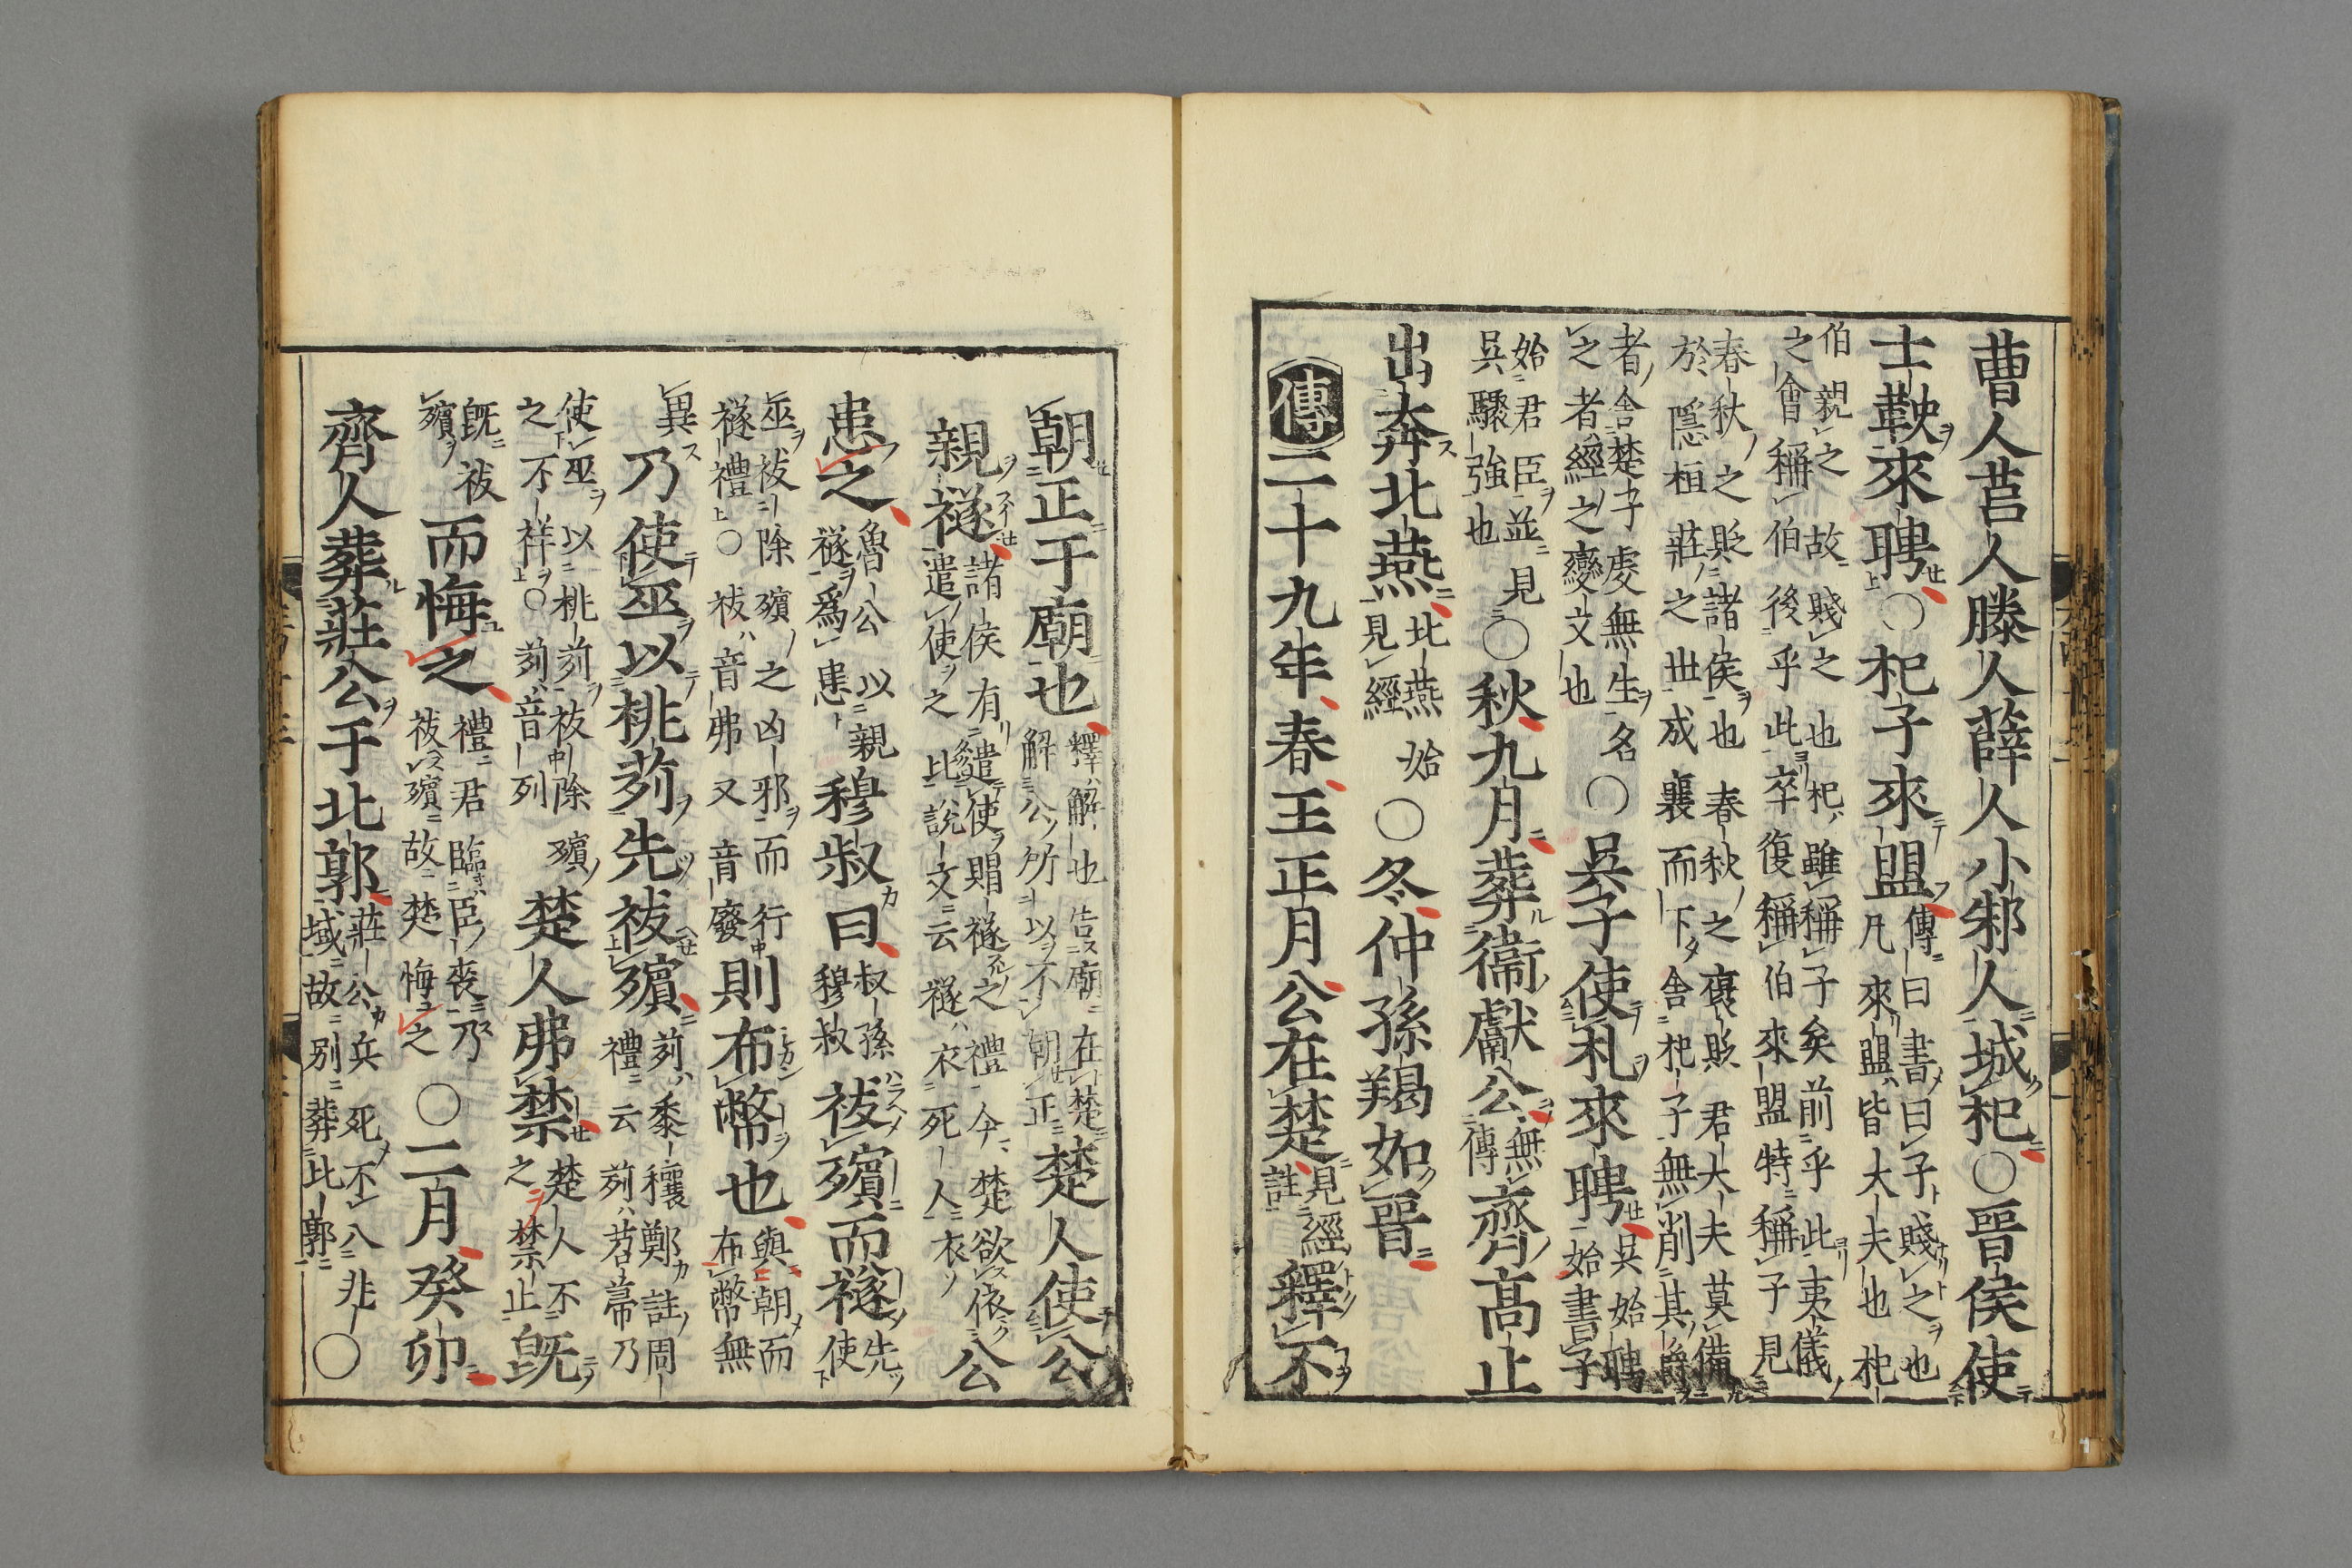 曹人莒人滕人薛人小邾人城杞○晉侯使
士鞅來聘○杞子來盟傳曰書曰子賤之也杞
凡來盟皆大夫也杞
伯親之故賤之也杞雖稱子矣前乎此夷儀
之會稱伯後乎此卒復稱伯來盟特稱子見
春秋之貶諸侯也春秋之褒貶君大夫莫備
於隱桓莊之世成襄而下舍杞子無削其爵
者舍楚子虔無生名○吳子使札來聘吳始聘
之者經之變文也始書子
始君臣並見○秋九月葬衞獻公無傳齊高止
吳驟強也
出奔北燕北燕始見經○冬仲孫羯如晉
傳二十九年春王正月公在楚見經註釋不
朝正于廟也釋解也告廟在楚解公所以不朝正楚人使公
親襚諸侯有遣使賵襚之禮今楚欲依遣使之比說文云襚衣死人衣公
患之魯公以親襚爲患穆叔曰叔孫穆叔祓殯而襚先使
巫祓除殯之凶邪而行襚禮○祓音弗又音廢則布幣也與朝而布幣無
異乃使巫以桃茢先祓殯茢黍穰鄭註周禮云茢苕帚乃
使巫以桃茢祓除殯之不祥○茢音列楚人弗禁楚人不之禁止旣
旣祓殯而悔之禮君臨臣喪乃祓殯故楚悔之○二月癸卯
齊人葬莊公于北郭莊公兵死不入兆域故別葬北郭○